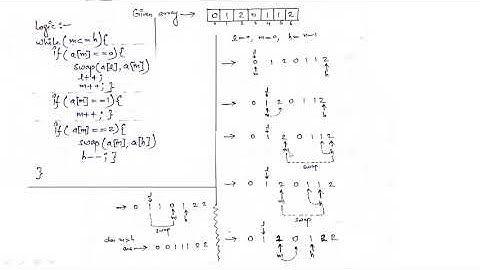 Given array → 0 1 2 0 1 1 2
0 1 2 3 4 5 6
Logic:-
while(m<=h){
if(a[m]==0){
swap(a[l],a[m])
l++;
m++; }
if(a[m]==1){
m++; }
if(a[m]==2){
swap(a[m],a[h])
h--; }
}
l=0, m=0, h=n-1
→ 0 1 2 0 1 1 2
→ 0 1 2 0 1 1 2
→ 0 1 2 0 1 1 2
swap
→ 0 1 2 0 1 1 2
swap
→ 0 1 2 0 1 2 2
→ 0 1 1 0 1 2 2
swap
ans → 0 0 1 1 1 2 2